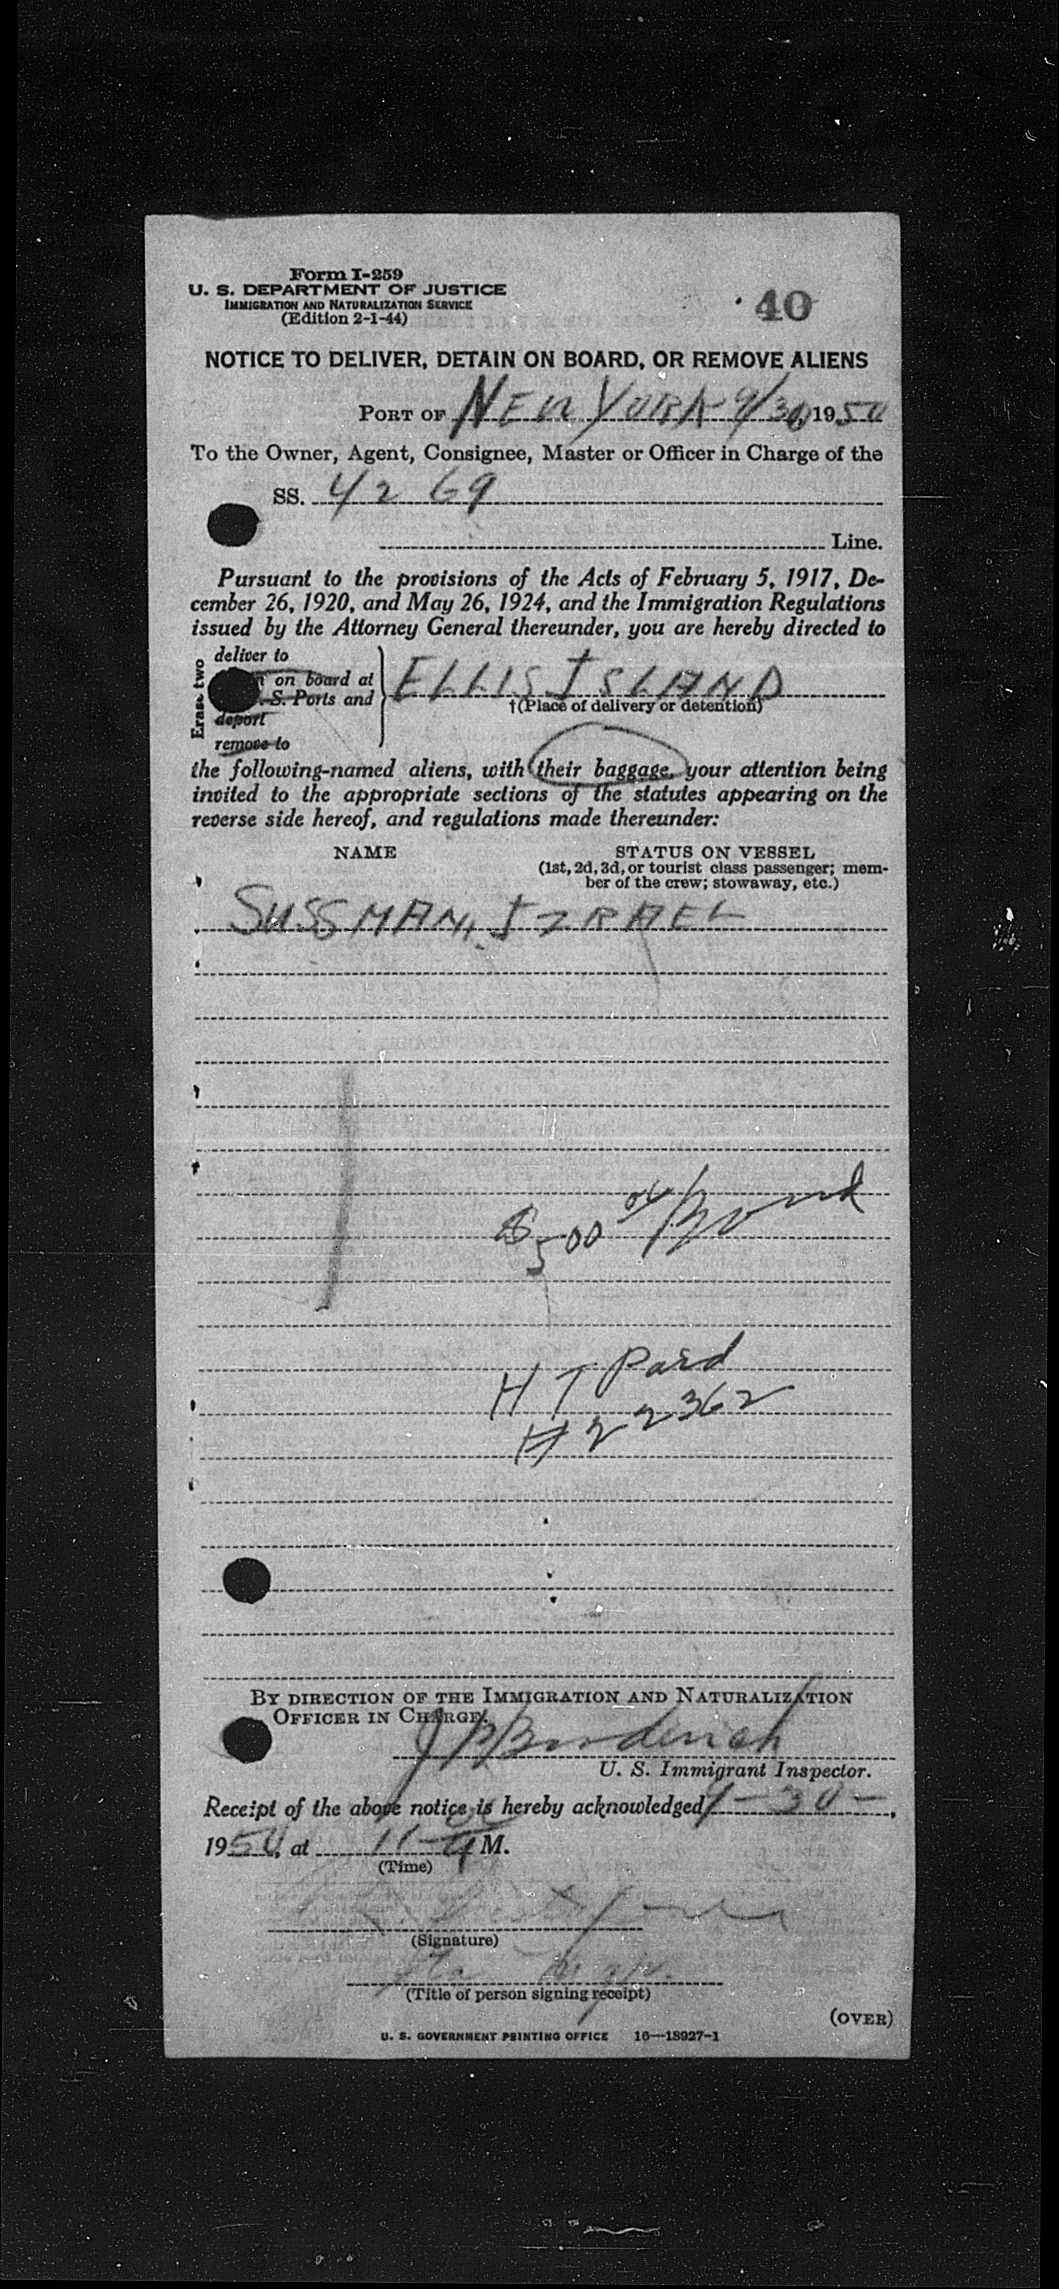 Form I-259
U. S. DEPARTMENT OF JUSTICE
IMMIGRATION AND NATURALIZATION SERVICE
(Edition 2-1-44)
40
NOTICE TO DELIVER, DETAIN ON BOARD, OR REMOVE ALIENS
PORT OF NEW YORK 9/30, 1950
To the Owner, Agent, Consignee, Master or Officer in Charge of the
SS. 4269
Line.
Pursuant to the provisions of the Acts of February 5, 1917, De-
cember 26, 1920, and May 26, 1924, and the Immigration Regulations
issued by the Attorney General thereunder, you are hereby directed to
Erase two
deliver to
on board at
S. Ports and
deport
remove to
ELLIS ISLAND
†(Place of delivery or detention)
the following-named aliens, with their baggage, your attention being
invited to the appropriate sections of the statutes appearing on the
reverse side hereof, and regulations made thereunder:
NAME
STATUS ON VESSEL
(1st, 2d, 3d, or tourist class passenger; mem-
ber of the crew; stowaway, etc.)
SUSSMAN, IZRAEL
$500 00 Bond
H T Paid
# 22362
BY DIRECTION OF THE IMMIGRATION AND NATURALIZATION
OFFICER IN CHARGE.
U. S. Immigrant Inspector.
Receipt of the above notice is hereby acknowledged
1950, at 11 M.
(Time)
(Signature)
(Title of person signing receipt)
(OVER)
U. S. GOVERNMENT PRINTING OFFICE 16—18927-1